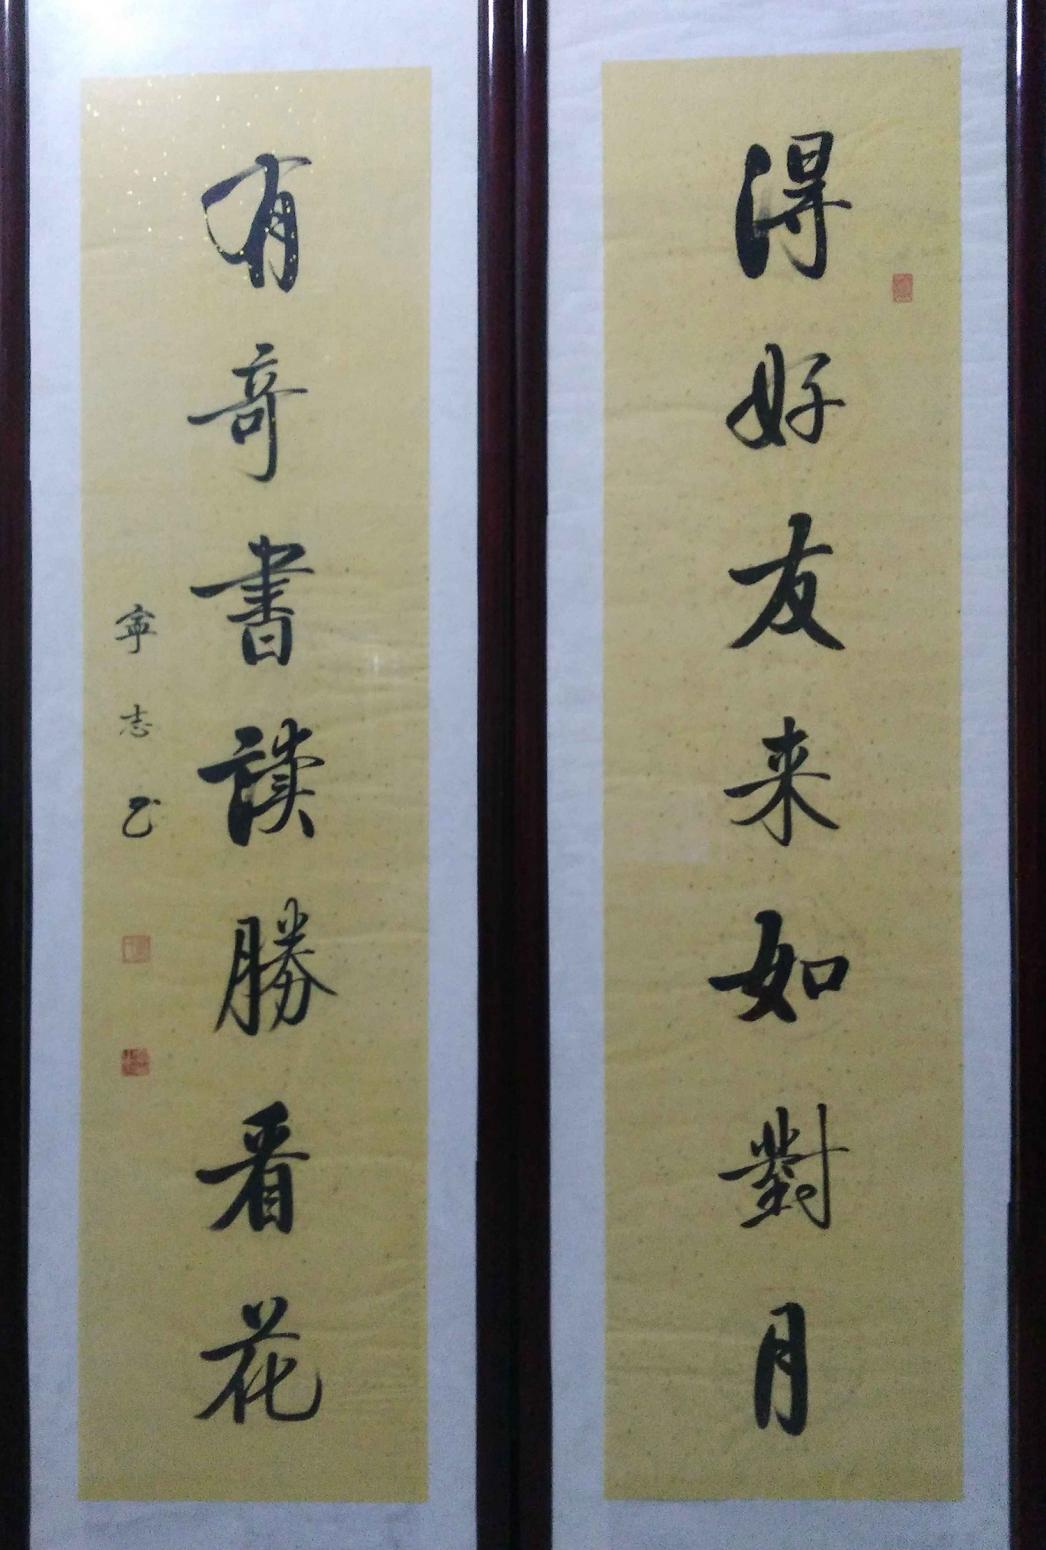 得好友来如對月
有奇書讀勝看花
寧志书